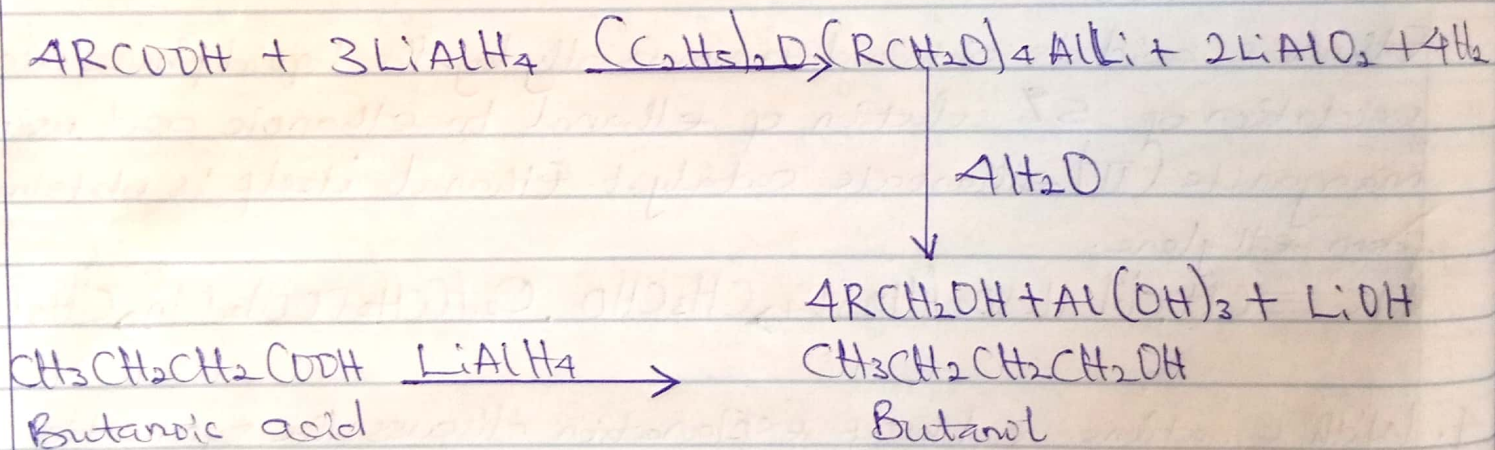 4RCOOH + 3LiAlH4 (C2H5)2O → (RCH2O)4AlLi + 2LiAlO2 + 4H2
4H2O
4RCH2OH + Al(OH)3 + LiOH
CH3CH2CH2COOH LiAlH4 → CH3CH2CH2CH2OH
Butanoic acid Butanol